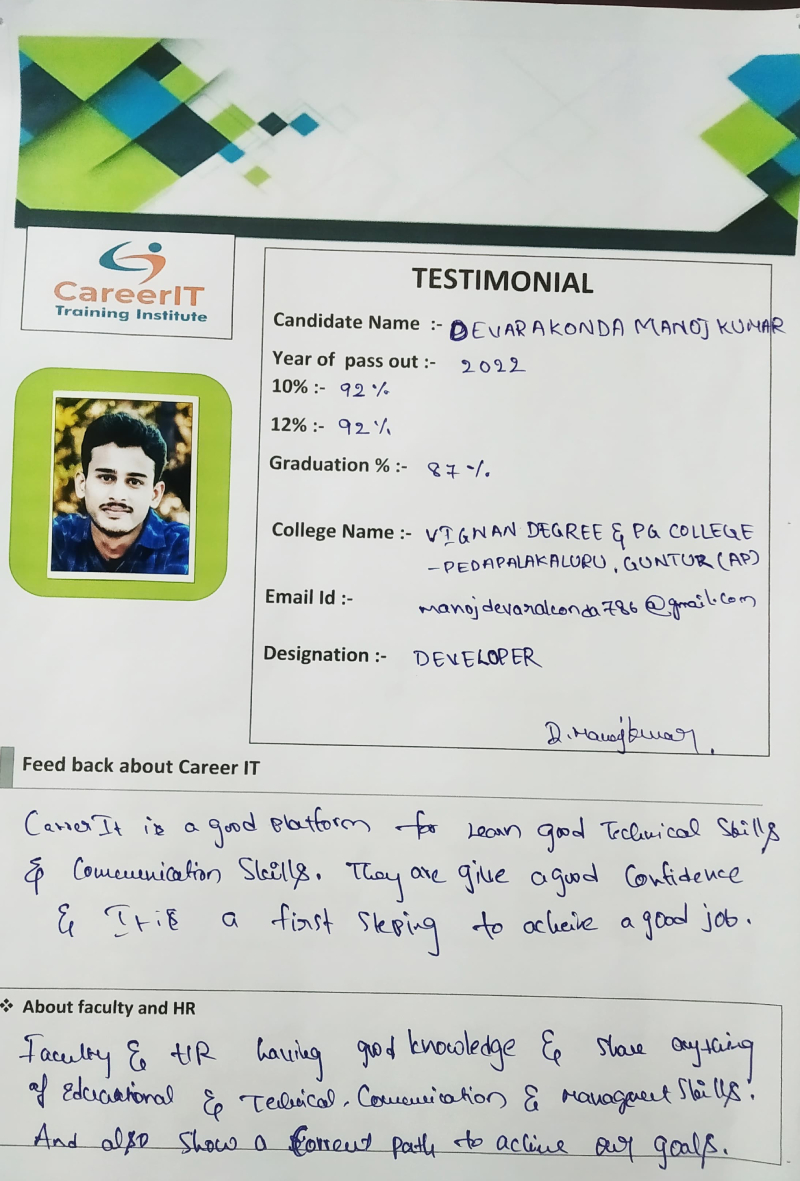 CareerIT
Training Institute
TESTIMONIAL
Candidate Name :- DEVARAKONDA MANOJ KUMAR
Year of pass out :- 2022
10% :- 92%
12% :- 92%
Graduation % :- 87%
College Name :- VIGNAN DEGREE & PG COLLEGE
-PEDAPALAKALURU, GUNTUR (AP)
Email Id :- manojdevarakonda786@gmail.com
Designation :- DEVELOPER
D. Manojkumar.
Feed back about Career IT
CarrerIt is a good platform for Learn good Technical Skills
& Communication Skills. They are give a good Confidence
& It is a first steping to acheive a good job.
❖ About faculty and HR
Faculty & HR having good knowledge & share anything
of Educational & Technical, Communication & Management Skills.
And also show a Correct path to achive our goals.